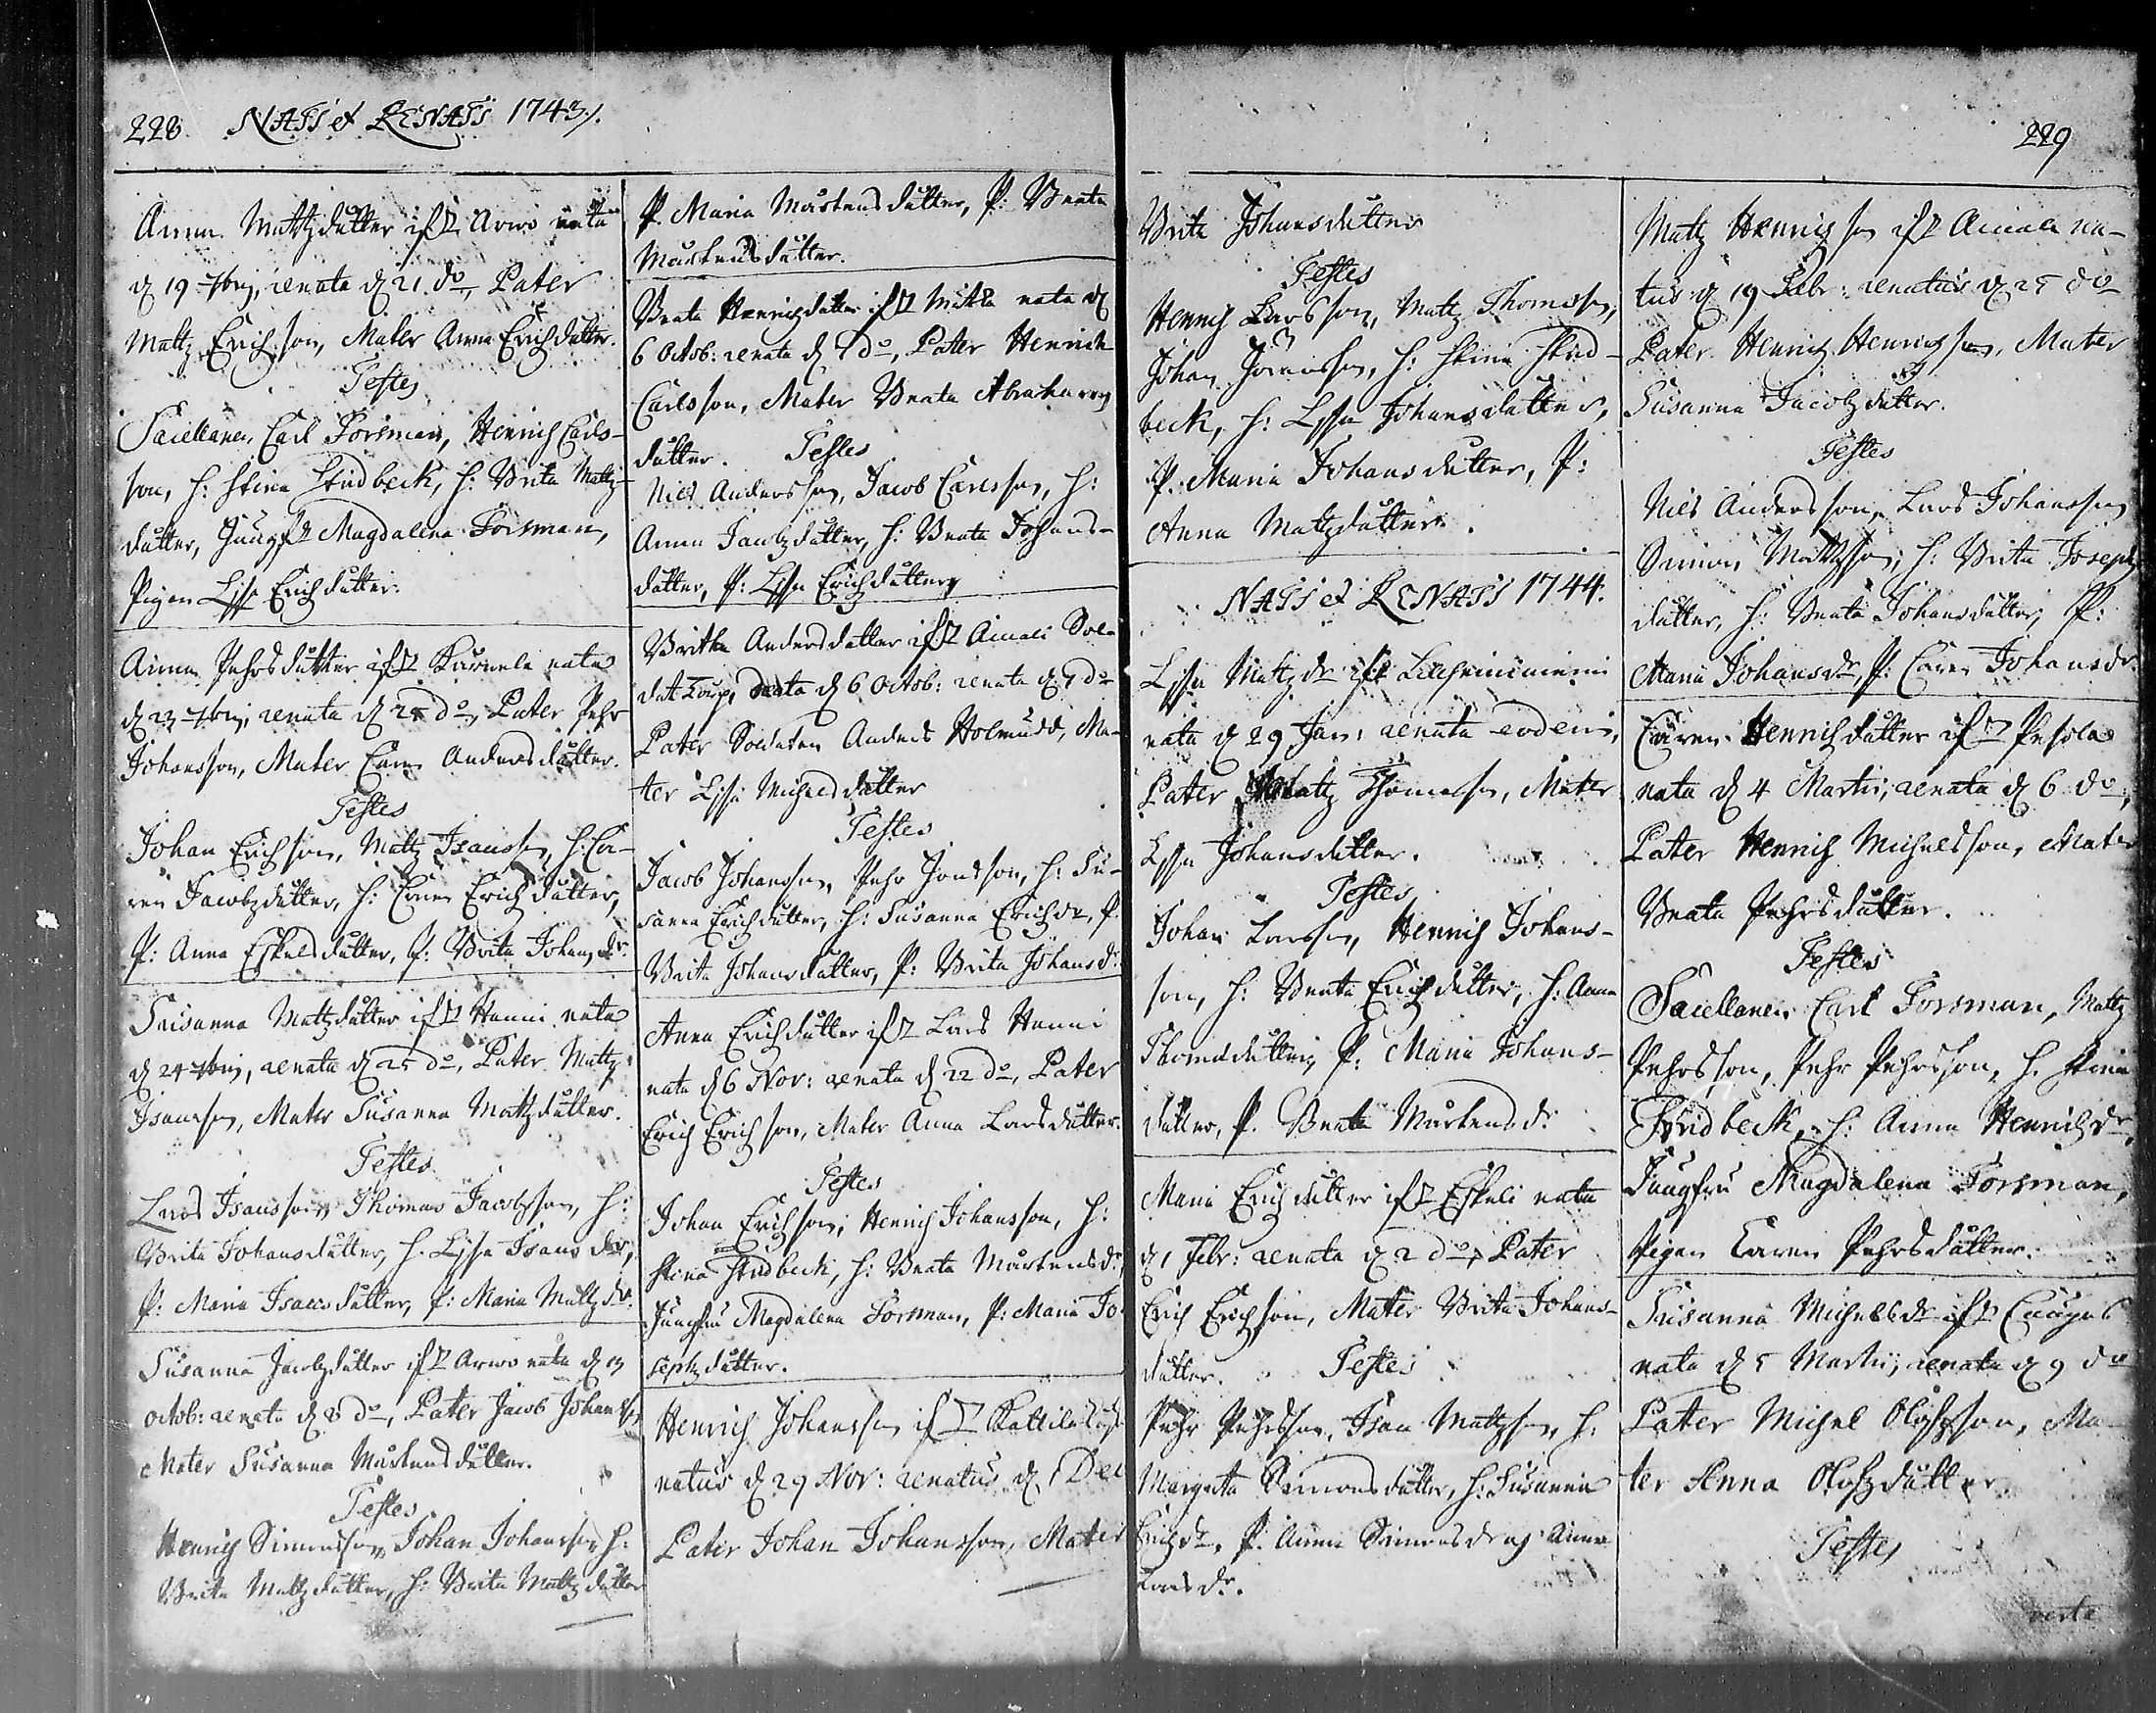 228. NATI et RENATI 1743.
Anna Mattzdutter ifr. Arwo nata
d 19 7bris, renata d 21. do, Pater
Mattz Erichson, Mater Anna Erichdutter.
Testes
Carl Forsman, Henrich Carls-
son, H: Stina Stud beck, H: Brita Mattz-
dutter, Jungfr Magdalena Forsman,
Pigan Lisa Erichdutter.
Anna Pehrsdutter ifr nata
d 23 7bris, renata d 25 do, Pater Pehr
Johansson, Mater Caren Andersdutter.
Testes
Johan Erichson, Mattz Isaacsson, H: Ca-
ren Jacobzdutter, H: Caren Erichdutter,
P: Anna Eskelsdutter, P: Brita Johansdr.
Susanna Mattzdutter ifr Hanni nata
d 24 7bris, renata d 25 do, Pater Mattz
Isaacson, Mater Susanna Mattzdutter.
Testes
Lars Isaacsson, Thomas Jacobsson, H:
Brita Johansdutter, H: Lisa Isaacsdr,
P: Maria Isaacsdutter, P: Maria Mattzdr.
Susanna Jacobzdutter ifr Arwo nata d
Octob: renata d 8 do, Pater Jacob Johansson
Mater Susanna Mårtensdutter.
Testes
Henrich Simonsson, Johan Johansson, H:
Brita Mattzdutter, H: Brita Mattzdutter
P. Maria Mårtensdutter, P: Beata
Mårtensdutter.
Beata Henrichdutter ifr Mikla nata d
6 Octob: renata d 7 do, Pater Henrich
Carlsson, Mater Beata Abrahams
dutter. Testes
Nils Andersson, Jacob Carlsson, H:
Anna Jacobzdutter, H: Beata Johans-
dutter, P: Lisa Erichdutter
Britha Andersdutter ifr Ainali Sol-
dat Torp, nata d 6 Octob: renata d 7 do
Pater Soldaten Anders Holmudd, Ma-
ter Lisa Michelsdutter
Testes
Jacob Johansson, Pehr Jönsson, H: Su-
sanna Erichdutter, H: Susanna Erichdr, P.
Brita Johansdutter, P: Brita Johansdr.
Anna Erichdutter ifr Lars Hanni
nata d 6 Nov: renata d 22 do, Pater
Erich Erichson, Mater Anna Larsdutter.
Testes
Johan Erichson, Henrich Johansson, H:
Stina Studbeck, H: Beata Mårtensdr,
Jungfru Magdalena Forsman, P: Maria Jo-
sephzdutter.
Henrich Johansson ifr
natus d 29 Nov: renatus d 1 Dec
Pater Johan Johansson, Mater
229
Brita Johansdutter
Testes
Henrich Larsson, Mattz Thomasson,
Johan H: Stina Stud-
beck, H: Lisa Johansdutter,
P: Maria Johansdutter, P:
Anna Mattzdutter.
NATI et RENATI 1744.
Lisa Mattzdr ifr
nata d 29 Jan: renata eodem,
Pater Mattz Thomasson, Mater
Lisa Johansdutter.
Testes
Johan Larsson, Henrich Johans-
son, H: Beata Erichdutter, H: Anna
Thomadutter, P. Maria Johans-
dutter, P. Beata Mårtensd:
Maria Erichdutter ifr Eskeli nata
d 1 Febr: renata d 2 do, Pater
Erich Erichson, Mater Brita Johans-
dutter. Testes
Pehr Pehrsson, Isaac Mattzson, H:
Margreta Simonsdutter, H: Susanna
Erichdr, P. Anna Simonsdr och Anna
Larsdr.
Mattz Henrichson ifr Ainali na-
tus d 19 Febr: renatus d 25 do
Pater Henrich Henrichson, Mater
Susanna Jacobzdutter.
Testes
Nils Andersson, Lars Johansson
Simon Mattzson, H: Brita Josephz
dutter, H: Beata Johansdutter, P:
Maria Johansdr, P. Caren Johansdr.
Caren Henrichdutter ifr Pesola
nata d 4 Martii, renata d 6 do,
Pater Henrich Michelsson, Mater
Beata Pehrsdutter.
Testes
Carl Forsman, Mattz
Pehrsson, Pehr Pehrsson, H. Stina
Studbeck, H: Anna Henrichdr,
Jungfru Magdalena Forsman,
Pigan Caren Pehrsdutter.
Susanna Michelsdr ifr
nata d 5 Martii, renata d 9 do
Pater Michel Olofsson, Ma-
ter Anna Olofzdutter
Testes
verte